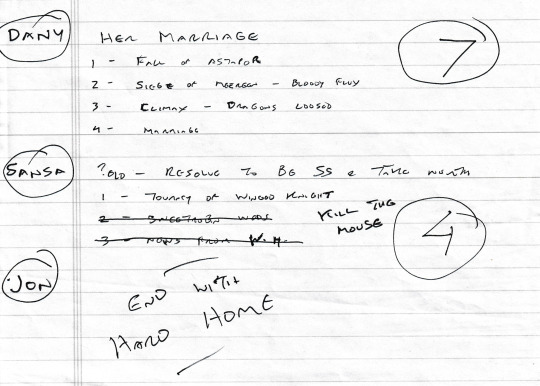 DANY HER MARRIAGE 7
1 - FALL OF ASTAPOR
2 - SIEGE OF MEEREEN - BLOODY FLUX
3 - CLIMAX - DRAGONS LOOSED
4 - MARRIAGE
SANSA ? - RESOLVE TO BE SS & TAKE NORTH
1 - TOURNEY OF WINGED KNIGHT
2 -
3 - NEWS FROM W.H.
KILL THE
MOUSE
4
JON
END WITH
HARD HOME